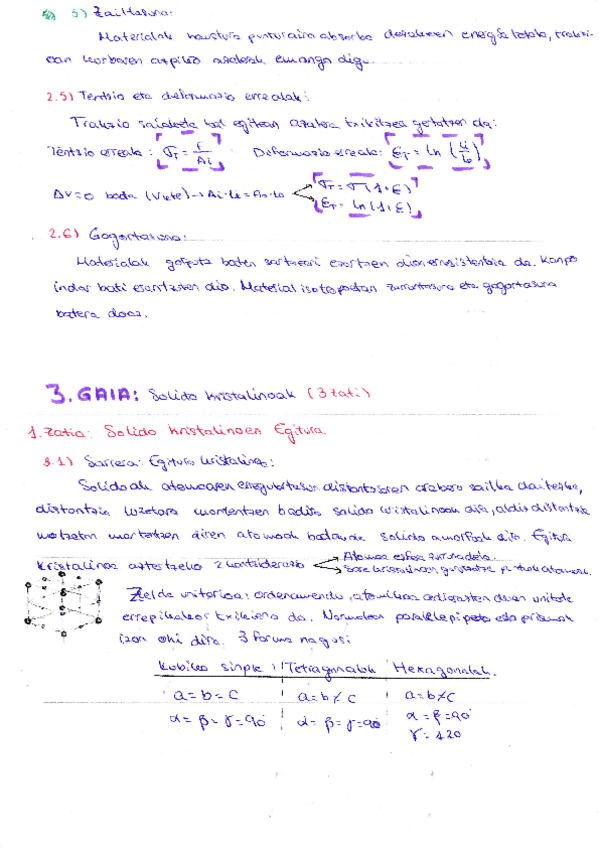 5) Zailtasuna:
Materialak haustura punturaino absorba dezakeen energia totala, trakzi-
oan kurbaren azpiko azalerak emango digu.
2.5) Tentsio eta deformazio errealak:
Trakzio saiakera bat egitean azalera txikitzea gertatzen da:
Tentsio erreala: σT = F/Ai Deformazio erreala: ET = ln (li/lo)
ΔV=0 bada (Vkte) → Ai·li = Ao·lo σT = σ(1+E)
ET = ln(1+E)
2.6) Gogortasuna:
Materialak gorputz baten sartzeari ezartzen dion erresistentzia da. Kanpo
indar bati esartzen dio. Material isotropoetan zurruntasuna eta gogortasuna
batera doaz.
3. GAIA: Solido kristalinoak (3 zati)
1. Zatia: Solido kristalinoen Egitura.
3.1) Sarrera: Egitura kristalinoa:
Solidoak atomoaren erregulartasun distantziaren arabera sailka daitezke,
distantzia luzetara mantentzen badira solido kristalinoak dira, aldiz distantzia
motzetan mantentzen diren atomoak badaude solido amorfoak dira. Egitura
kristalinoa aztertzeko 2 kontsiderazio Atomoa esfera zurruna dela.
Sare kristalinoan puntuak atomoak.
Zelda unitarioa: ordenamendu atomikoa ardigasten duen unitate
errepikakor txikiena da. Normalean paralelepipedo edo prismak
izan ohi dira. 3 forma nagusi
Kubiko sinple Tetragonalak Hexagonalak.
a=b=c a=b≠c a=b≠c
α=β=γ=90° α=β=γ=90° α=β=90°
γ=120